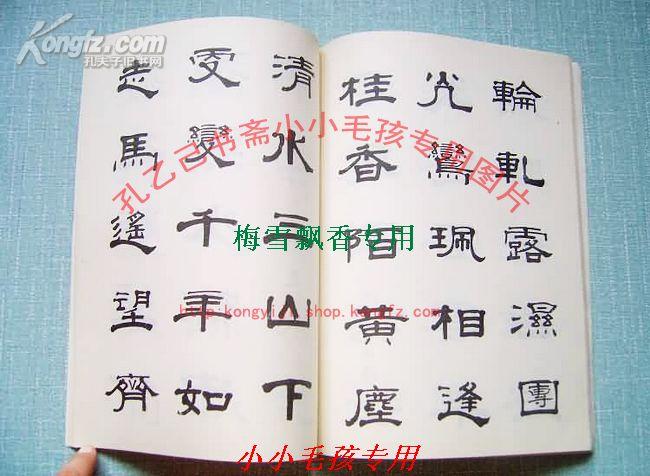 輪軋露濕團
光鸞珮相逢
桂香陌黃塵
清水三山下
更變千年如
走馬遙望齊
Kongfz.com
孔夫子旧书网
孔乙己书斋小小毛孩专用图片
梅雪飘香专用
小小毛孩专用